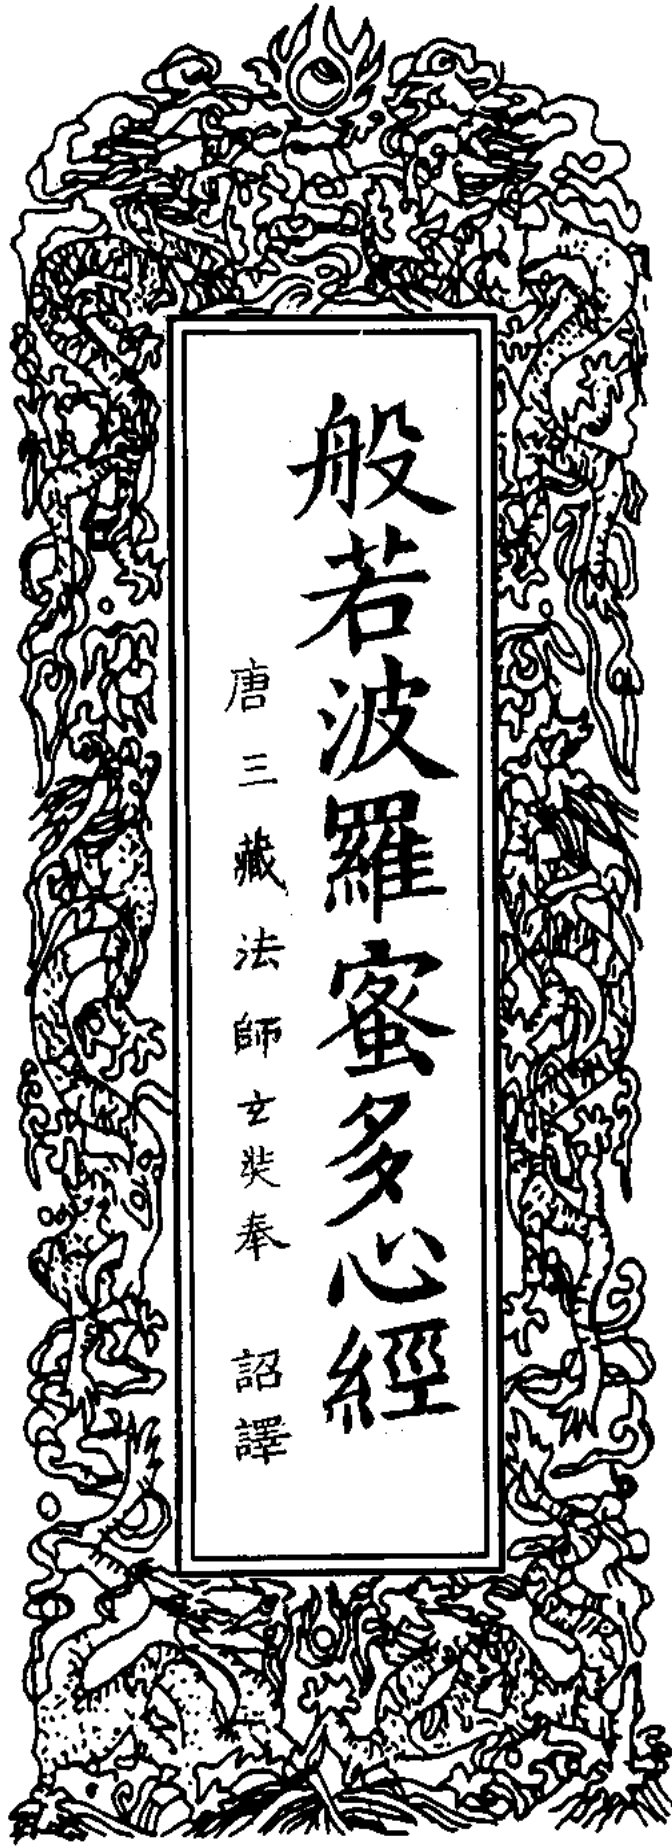 般若波羅蜜多心經
唐三藏法師玄奘奉 詔譯